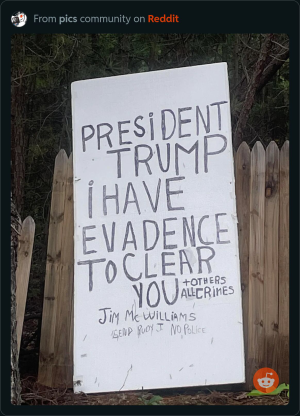 From pics community on Reddit
PRESIDENT
TRUMP
i HAVE
EVADENCE
TO CLEAR
YOU +OTHERS
ALL CRIMES
Jim McWILLIAMS
SEND RUDY J NO Police